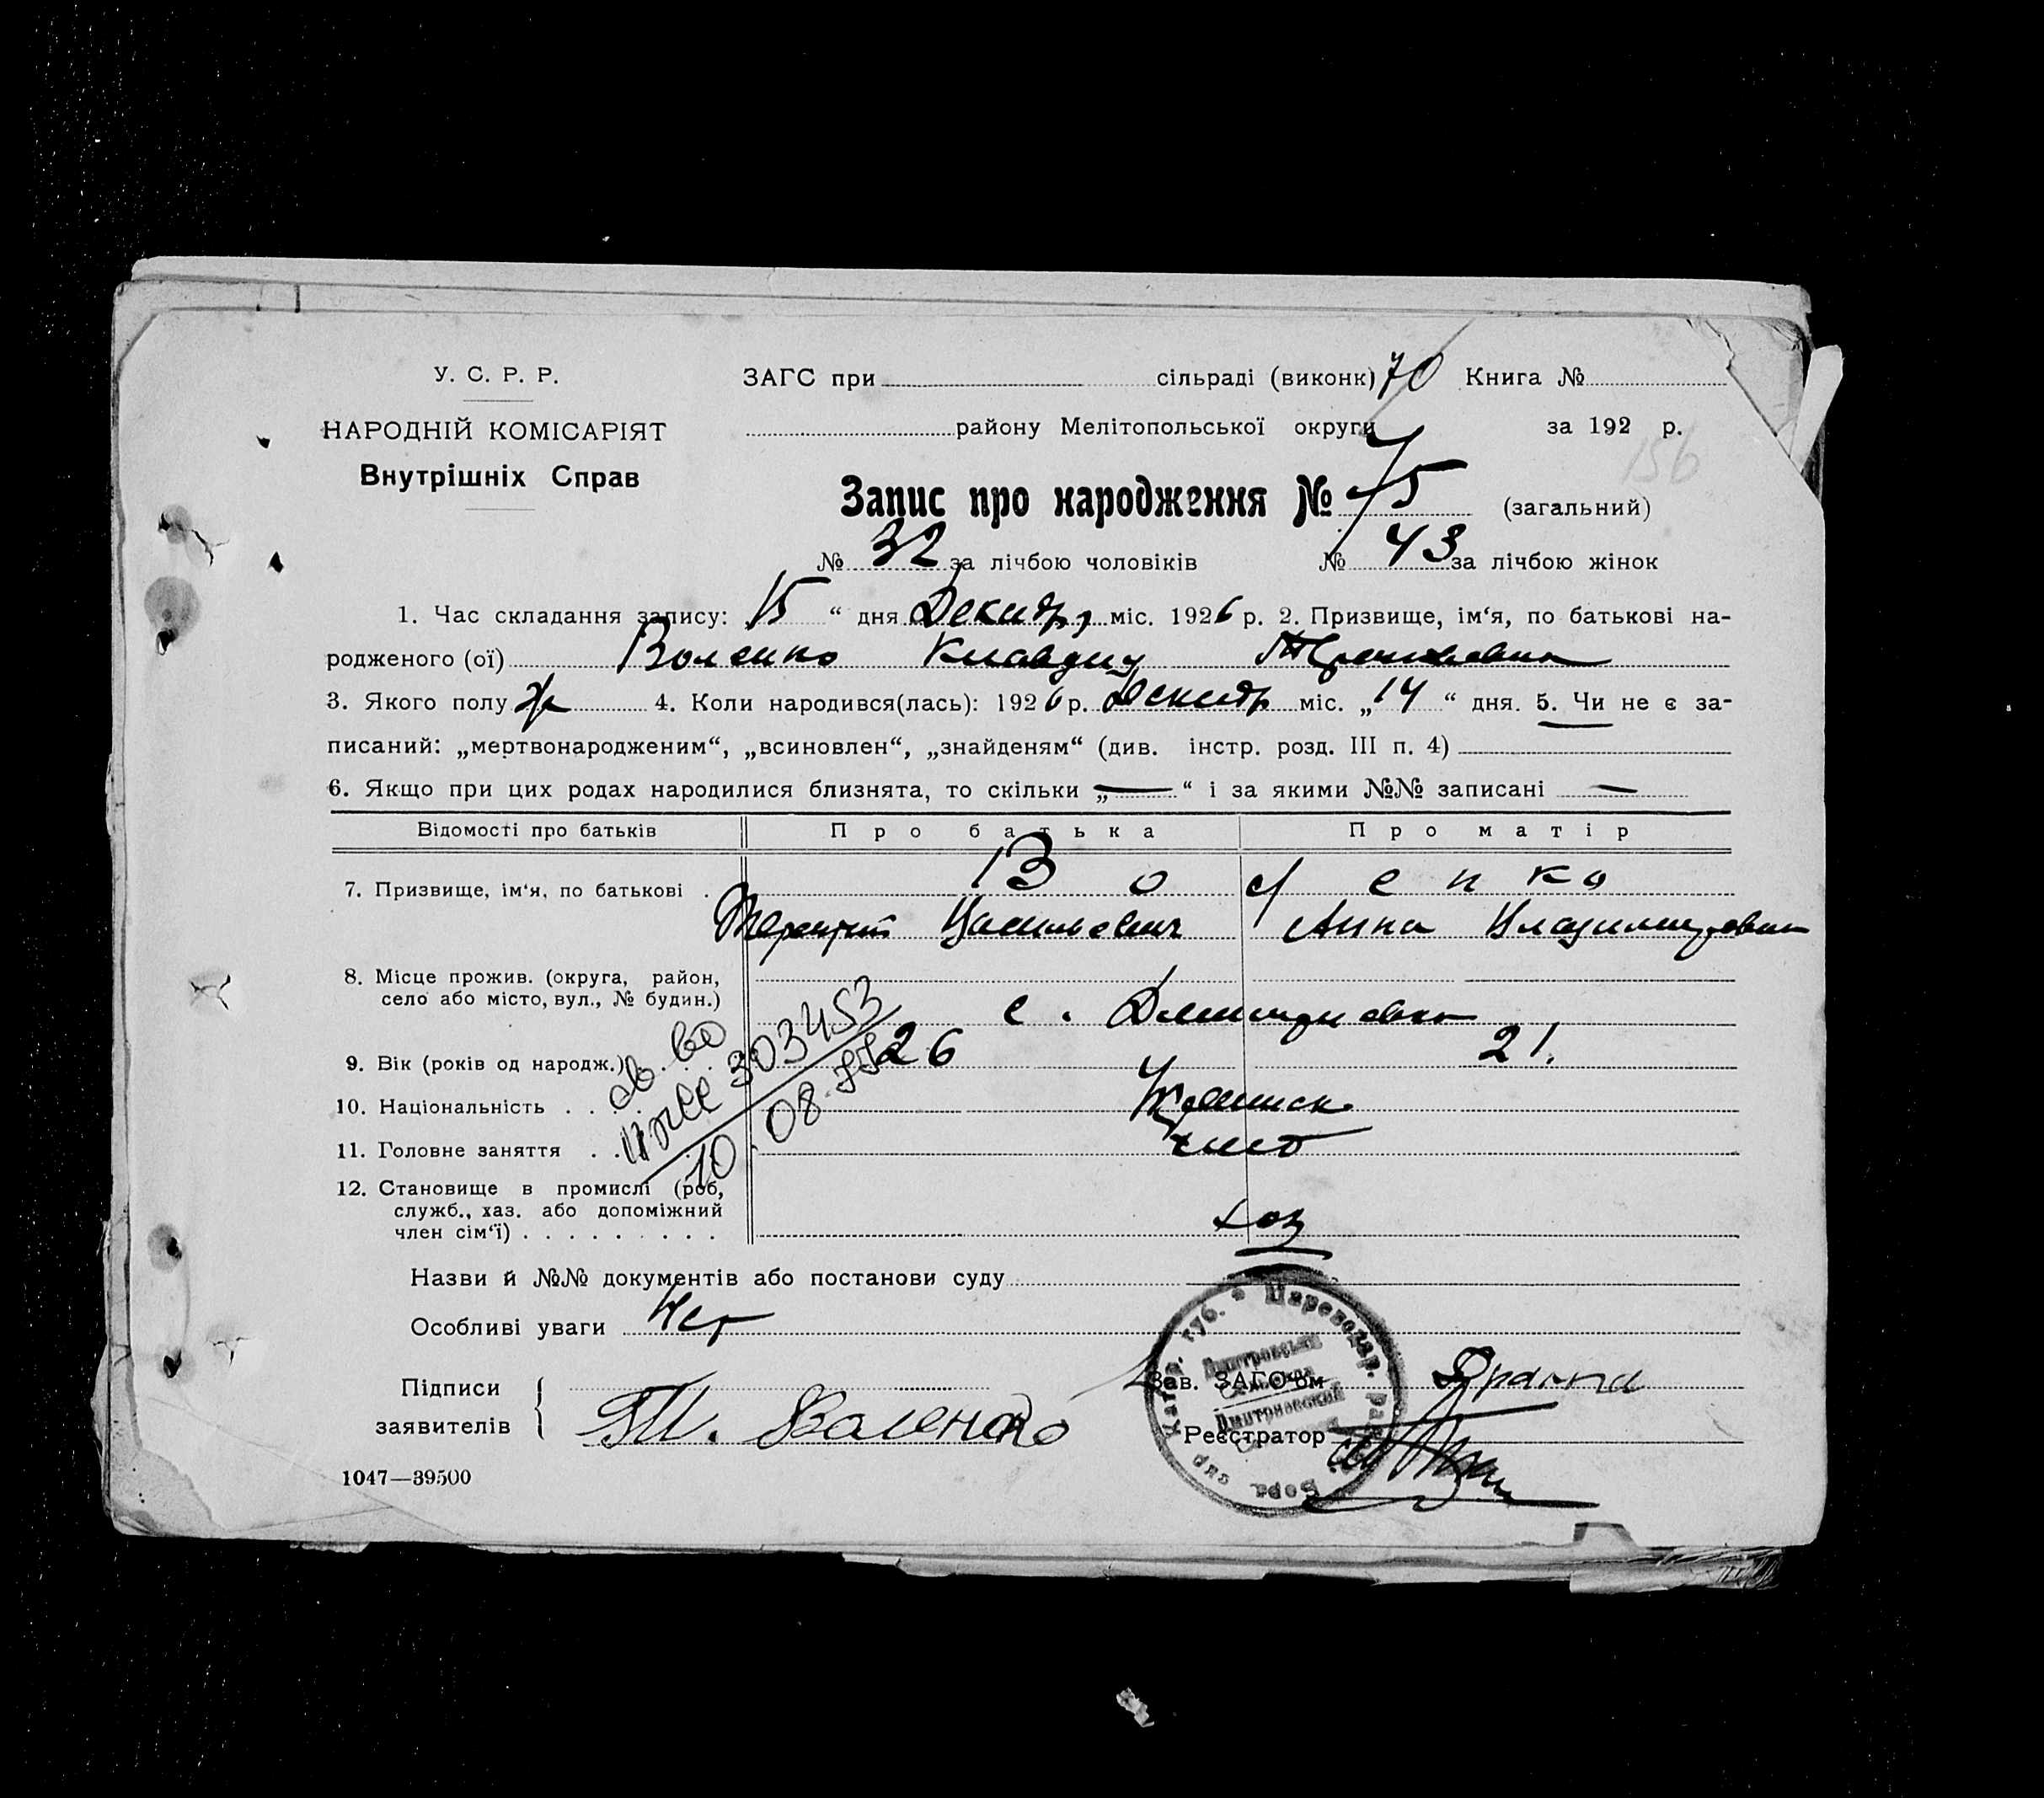 У. С. Р. Р.
НАРОДНІЙ КОМІСАРІЯТ
Внутрішніх Справ
ЗАГС при сільраді (виконк) 70 Книга №
району Мелітопольської округи за 192 р.
156
Запис про народження № 75 (загальний)
№ 32 за лічбою чоловіків № 43 за лічбою жінок
1. Час складання запису: 15 “ дня Декабр, міс. 1926 р. 2. Призвище, ім‘я, по батькові на-
родженого (ої) Воленко Клавдия
3. Якого полу ж 4. Коли народився(лась): 1926 р. Декабр міс. „14 “ дня. 5. Чи не є за-
писаний: „мертвонародженим“, „всиновлен“, „знайденям“ (див. інстр. розд. III п. 4)
6. Якщо при цих родах народилися близнята, то скільки „—“ і за якими №№ записані —
Відомості про батьків Про батька Про матір
7. Призвище, ім‘я, по батькові . Воленко
Терентий Васильевич Анна Владимировна
8. Місце прожив. (округа, район,
село або місто, вул., № будин.)
с. Дмитриевка
9. Вік (років од народж.) . . . 26 21.
10. Національність . .
11. Головне заняття . .
12. Становище в промислі (роб,
служб., хаз. або допоміжний
член сім‘ї) . . . . . . . . . хоз
св-во
303453
10.08.
Назви й №№ документів або постанови суду
Особливі уваги Нет
Підписи
заявителів
Т. Воленко
Зав. ЗАГС‘ом
Реєстратор
Катер. губ. * Цареводар. Бердя
Дмитровська
Дмитриевский
1047—39500